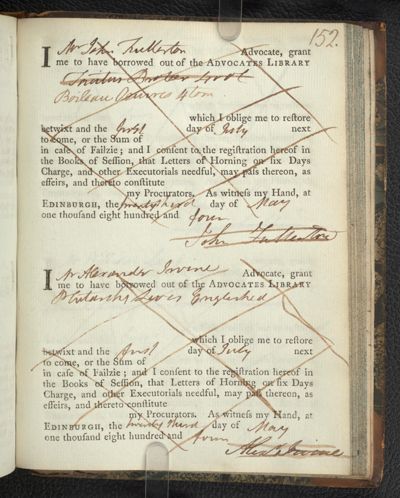 152.
I Mr John Fullerton Advocate, grant
me to have borrowed out of the ADVOCATES LIBRARY
Boileau Oeuvres 4 tom.
which I oblige me to restore
betwixt and the first day of July next
to come, or the Sum of
in case of Failzie; and I consent to the registration hereof in
the Books of Session, that Letters of Horning on six Days
Charge, and other Executorials needful, may pass thereon, as
effeirs, and thereto constitute
my Procurators. As witness my Hand, at
EDINBURGH, the twenty third day of May
one thousand eight hundred and four
John Fullerton
I Mr Alexander Irvine Advocate, grant
me to have borrowed out of the ADVOCATES LIBRARY
Plutarchs Lives Englished
which I oblige me to restore
betwixt and the first day of July next
to come, or the Sum of
in case of Failzie; and I consent to the registration hereof in
the Books of Session, that Letters of Horning on six Days
Charge, and other Executorials needful, may pass thereon, as
effeirs, and thereto constitute
my Procurators. As witness my Hand, at
EDINBURGH, the twenty third day of May
one thousand eight hundred and four
Alex Irvine